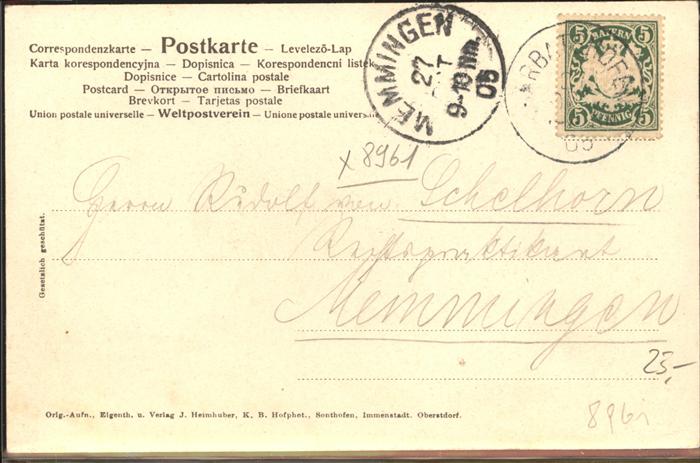 Correspondenzkarte — Postkarte — Levelező-Lap
Karta korespondencyjna — Dopisnica — Korespondencni listek
Dopisnice — Cartolina postale
Postcard — Открытое письмо — Briefkaart
Brevkort — Tarjetas postale
Union postale universelle — Weltpostverein — Unione postale univers
MEMMINGEN
27
9-10 Vm.
05
5 BAYERN 5
5 PFENNIG 5
05
x 8961
Herrn Rudolf von Schelhorn
Rechtspraktikant
Memmingen
Gesetzlich geschützt.
25,-
Orig.-Aufn., Eigenth. u. Verlag J. Heimhuber, K. B. Hofphot., Sonthofen, Immenstadt. Oberstdorf.
8961